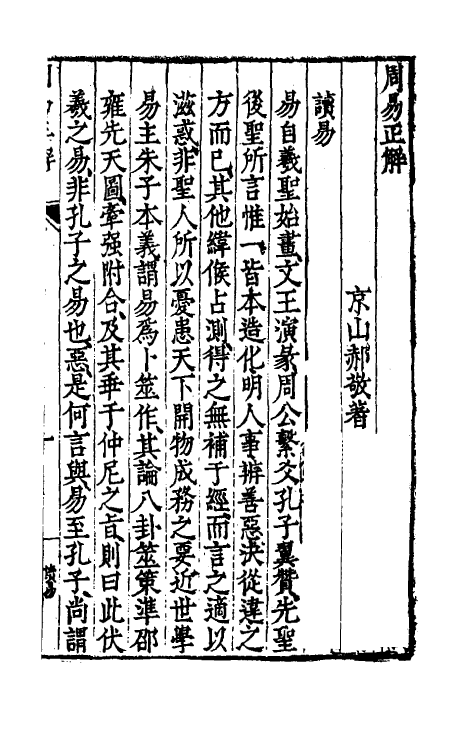 周易正解
京山郝敬著
讀易
易自羲聖始畫文王演彖周公繫爻孔子翼贊先聖
後聖所言惟一皆本造化明人事辨善惡決從違之
方而已其他緯候占測得之無補于經而言之適以
滋惑非聖人所以憂患天下開物成務之要近世學
易主朱子本義謂易爲卜筮作其論八卦筮策準邵
雍先天圖牽强附合及其乖于仲尼之旨則曰此伏
羲之易非孔子之易也惡是何言與易至孔子尚謂
讀易
一